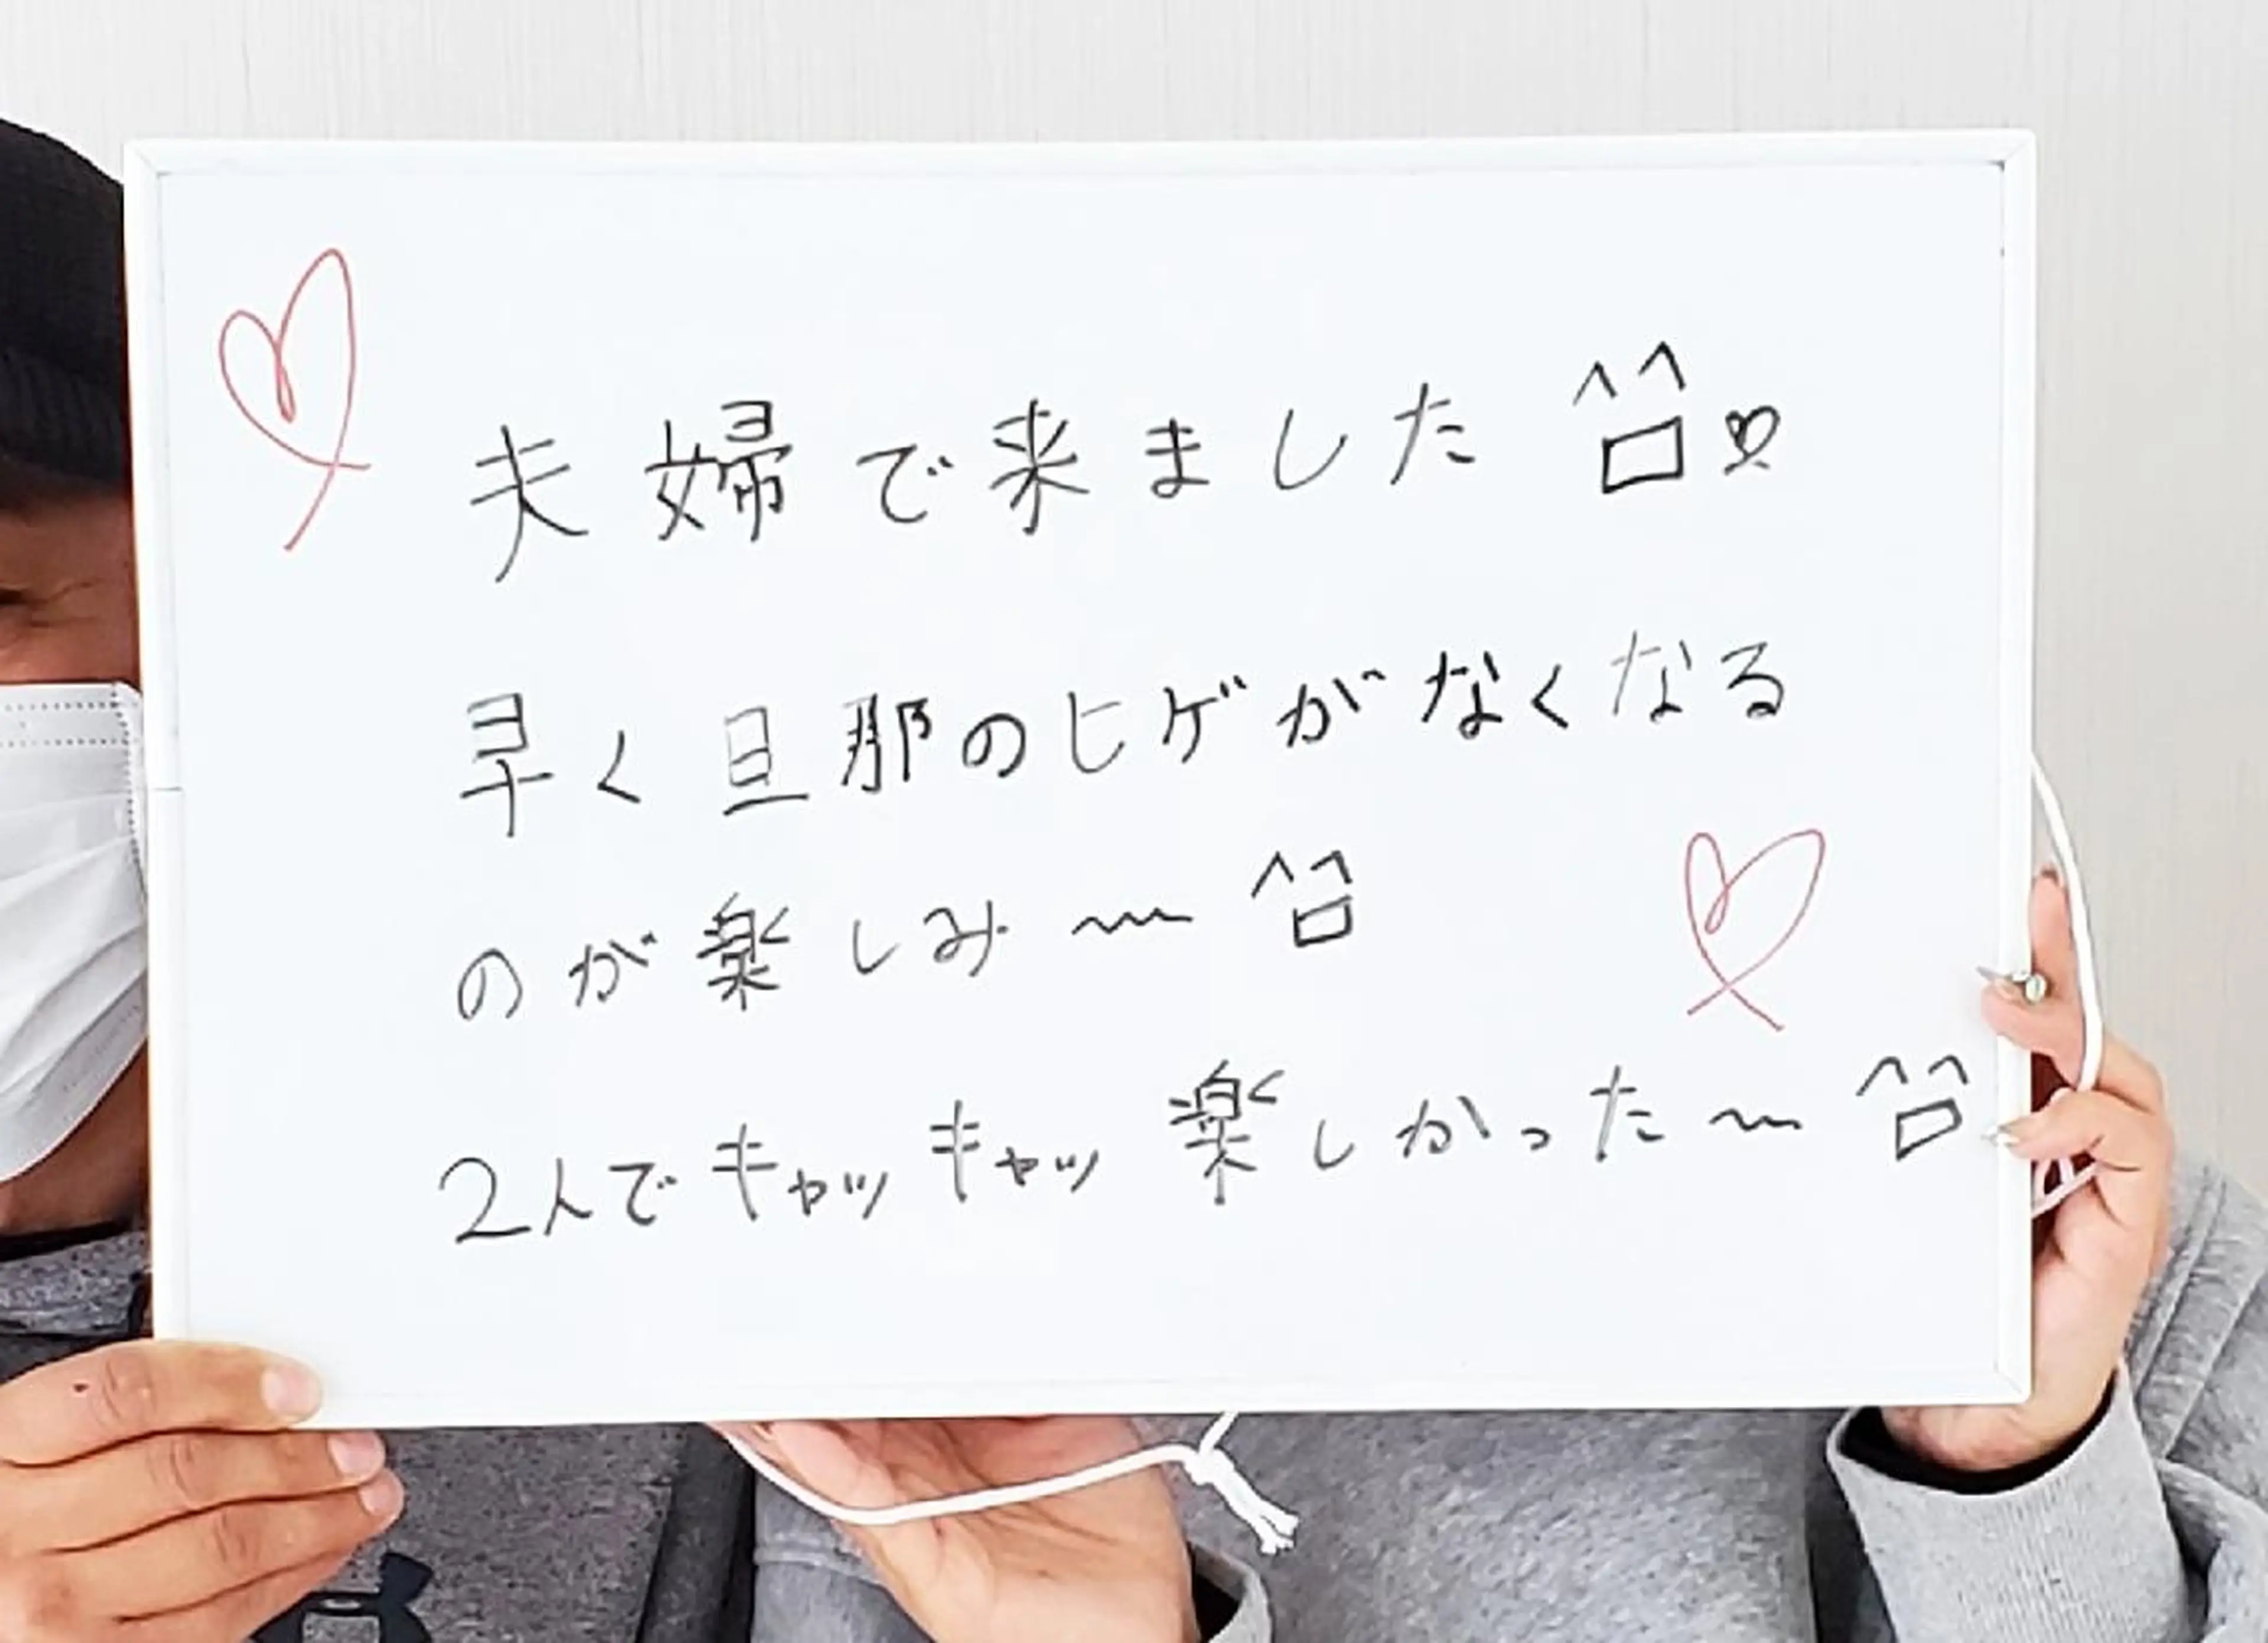 夫婦で来ました ^ロ^♡
早く旦那のヒゲがなくなる
のが楽しみ〜 ^ロ^
2人でキャッキャッ楽しかった〜 ^ロ^